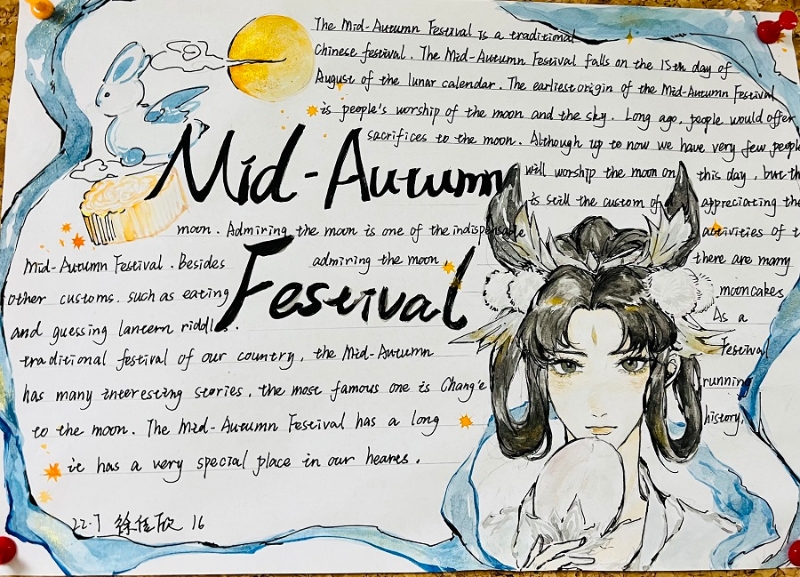 The Mid-Autumn Festival is a traditional
Chinese festival. The Mid-Autumn Festival falls on the 15th day of
August of the lunar calendar. The earliest origin of the Mid-Autumn Festival
is people's worship of the moon and the sky. Long ago, people would offer
sacrifices to the moon. Although up to now we have very few people
Mid-Autumn
will worship the moon on this day, but th
is still the custom of a appreciating the
moon. Admiring the moon is one of the indispensable activities of t
Mid-Autumn Festival. Besides admiring the moon, there are many
Festival
other customs. such as eating mooncakes
and guessing lantern riddles. As a
traditional festival of our country, the Mid-Autumn Festival
has many interesting stories, the most famous one is Chang'e running
to the moon. The Mid-Autumn Festival has a long history,
it has a very special place in our hearts.
22.7 徐佳欣 16